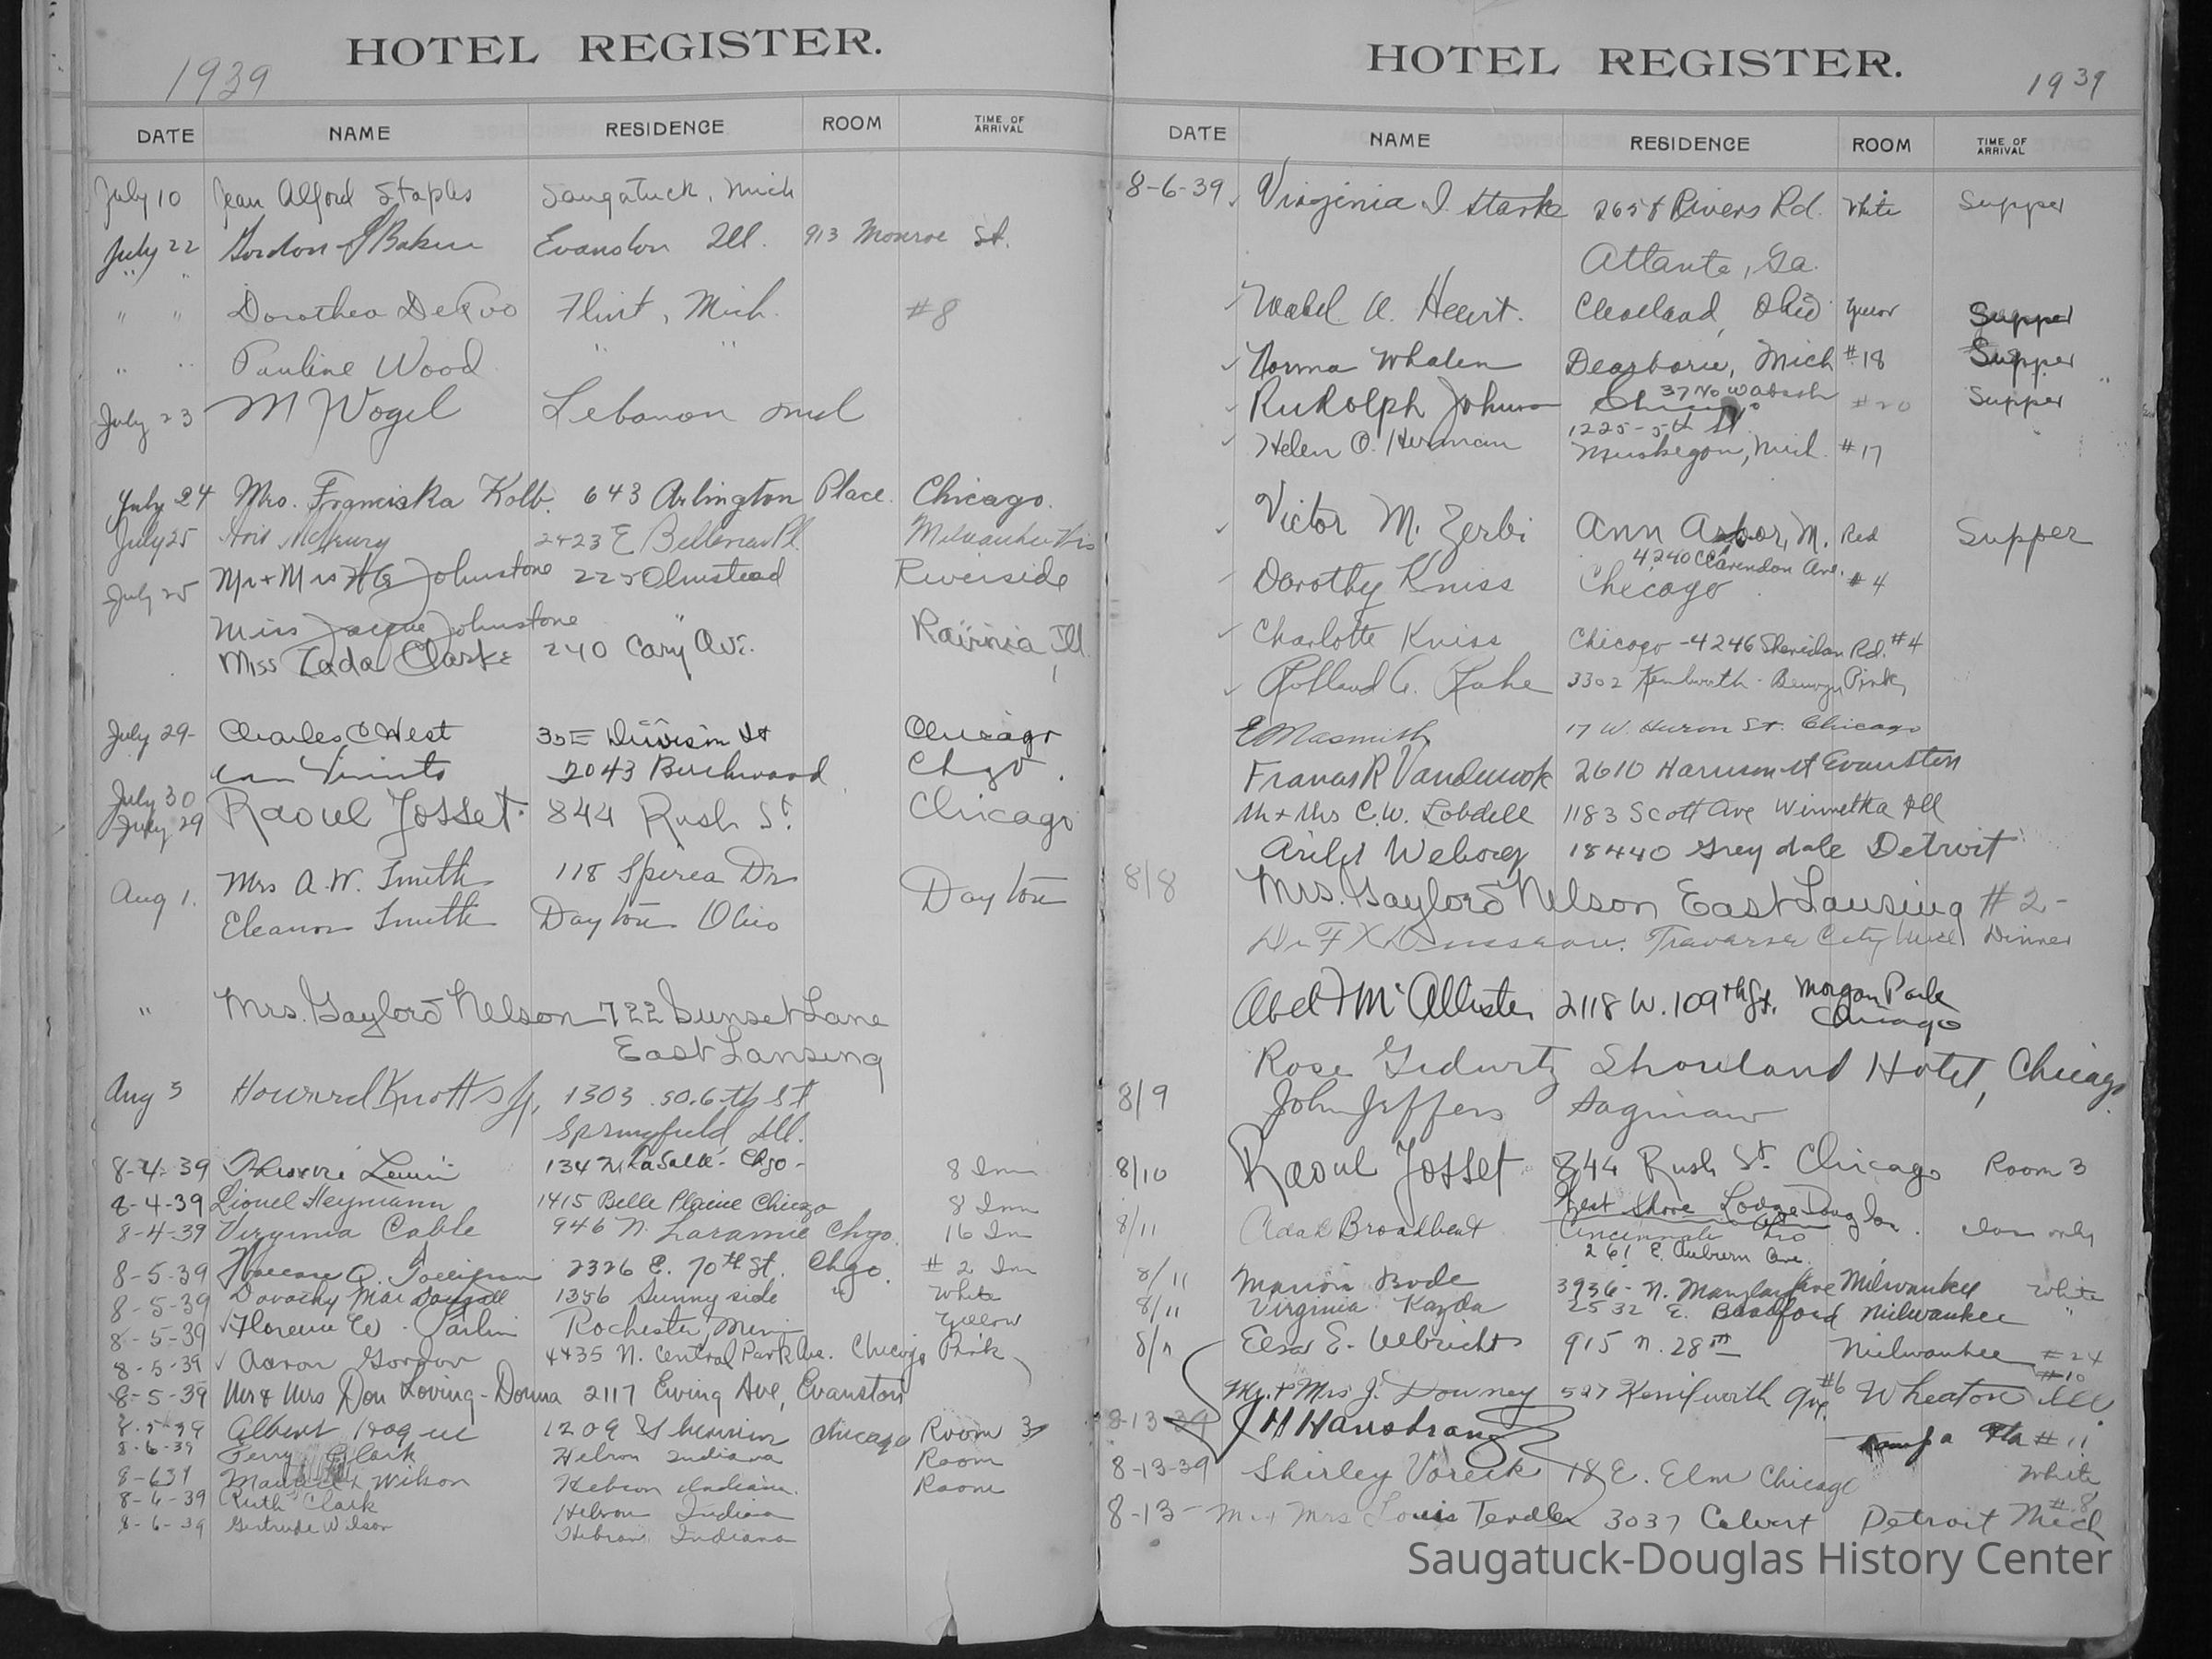 HOTEL REGISTER.
1939
DATE NAME RESIDENCE ROOM TIME OF ARRIVAL
July 10 Jean Alford Staples Saugatuck, Mich
July 22 Gordon Baker Evanston Ill. 913 Monroe St.
" " Dorothea DeFoo Flint, Mich. #8
" " Pauline Wood " "
July 23 M Vogel Lebanon
July 24 Mrs. Franciska Kolb. 643 Arlington Place. Chicago.
July 25 2423 E Pl. Milwaukee Wis
July 25 Mr + Mrs Johnstone 225 Olmstead Riverside
Miss Johnstone "
Miss Zada Clarke 240 Cary Ave. Ravinia Ill.
July 29 - Charles C West 35 E Division St Chicago
July 30 2043 Birchwood Chgo.
July 29 Raoul Josset. 844 Rush St. Chicago
Aug 1. Mrs A.W. Smith 118 Spirea Dr Dayton
Eleanor Smith Dayton Ohio
" Mrs. Gaylord Nelson 722 Sunset Lane
East Lansing
Aug 3 Howard Knotts Jr. 1303 So. 6th St
Springfield Ill.
8-4-39 134 N LaSalle - Chgo - 8 Inn
8-4-39 Lionel Heymann 1415 Belle Plaine Chicago 8 Inn
8-4-39 Virginia Cable 946 N. Laramie Chgo. 16 In
8-5-39 2326 E. 70th St. Chgo. #2 Inn
8-5-39 Dorothy MacDougall 1356 Sunnyside " White
8-5-39 Florence W. Parlin Rochester, Minn Yellow
8-5-39 Aaron Gordon 4435 N. Central Park Ave. Chicago Pink
8-5-39 Mr & Mrs Don Loving - Donna 2117 Ewing Ave, Evanston
8-5-39 Albert Hoque 1209 Chicago Room 3
8-6-39 Terry Clark Hebron Indiana Room
8-6 39 Wilson Hebron Indiana. Room
8-6-39 Ruth Clark Hebron Indiana
8-6-39 Gertrude Wilson Hebron Indiana
HOTEL REGISTER.
1939
DATE NAME RESIDENCE ROOM TIME OF ARRIVAL
8-6-39 Virginia I. Starke 2658 Rivers Rd. White Supper
Atlanta, Ga.
Mabel A. Hewit. Cleveland, Ohio Yellow Supper
Norma Whalen Dearborn, Mich #18 Supper
37 No Wabash
Rudolph Johnson Chicago #20 Supper
1225 - 5th St
Helen O. Herman Muskegon, Mich. #17
Victor M. Zerbi Ann Arbor, M. Red Supper
4240 Clarendon Ave.
Dorothy Kniss Chicago #4
Charlotte Kniss Chicago - 4246 Sheridan Rd. #4
Rolland G. 3302 Kenilworth - Berwyn Pink
E Masmith 17 W. Huron St. Chicago
Francis R Vanderwook 2610 Harrison St Evanston
Mr + Mrs C.W. Lobdell 1183 Scott Ave Winnetka Ill
Weborg 18440 Greydale Detroit
8/8 Mrs. Gaylord Nelson East Lansing #2 -
Dr F X Traverse City Mich Dinner
Abel McAllister 2118 W. 109th St. Morgan Park
Chicago
Rose Gidwitz Shoreland Hotel, Chicago
8/9 John Jeffers Saginaw
8/10 Raoul Josset 844 Rush St. Chicago Room 3
West Shore Lodge Douglas.
8/11 Broadbent Cincinnati Ohio only
261 E. Auburn Ave.
8/11 Marion Bode 3936 - N. Maryland Ave Milwaukee White
8/11 Virginia Kazda 2532 E. Bradford Milwaukee "
8/11 Elsa E. Ulbricht 915 N. 28th Milwaukee #24
#10
Mr. + Mrs J. Downey 527 Kenilworth Ave. #6 Wheaton Ill.
8-13-39 J H Hanstrang Tampa Fla #11
8-13-39 Shirley Voreck 18 E. Elm Chicago White
#8
8-13- Mr + Mrs Louis Tendler 3037 Calvert Detroit Mich
Saugatuck-Douglas History Center